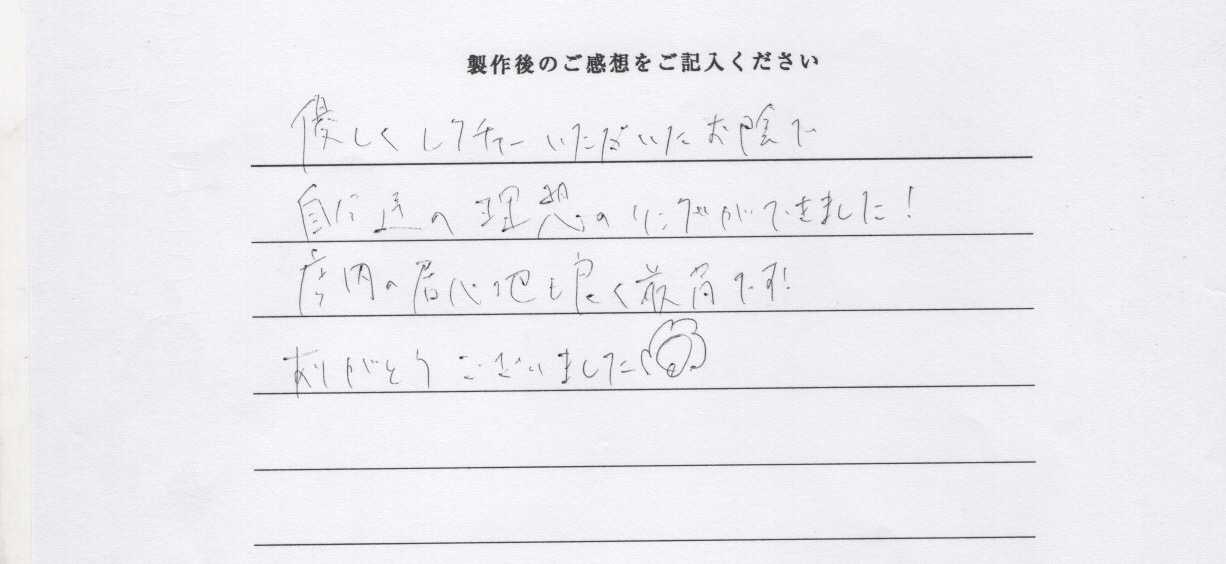 製作後のご感想をご記入ください
優しくレクチャーいただいたお陰で
自分達の理想のリングができました！
店内の居心地も良く最高です！
ありがとうございました